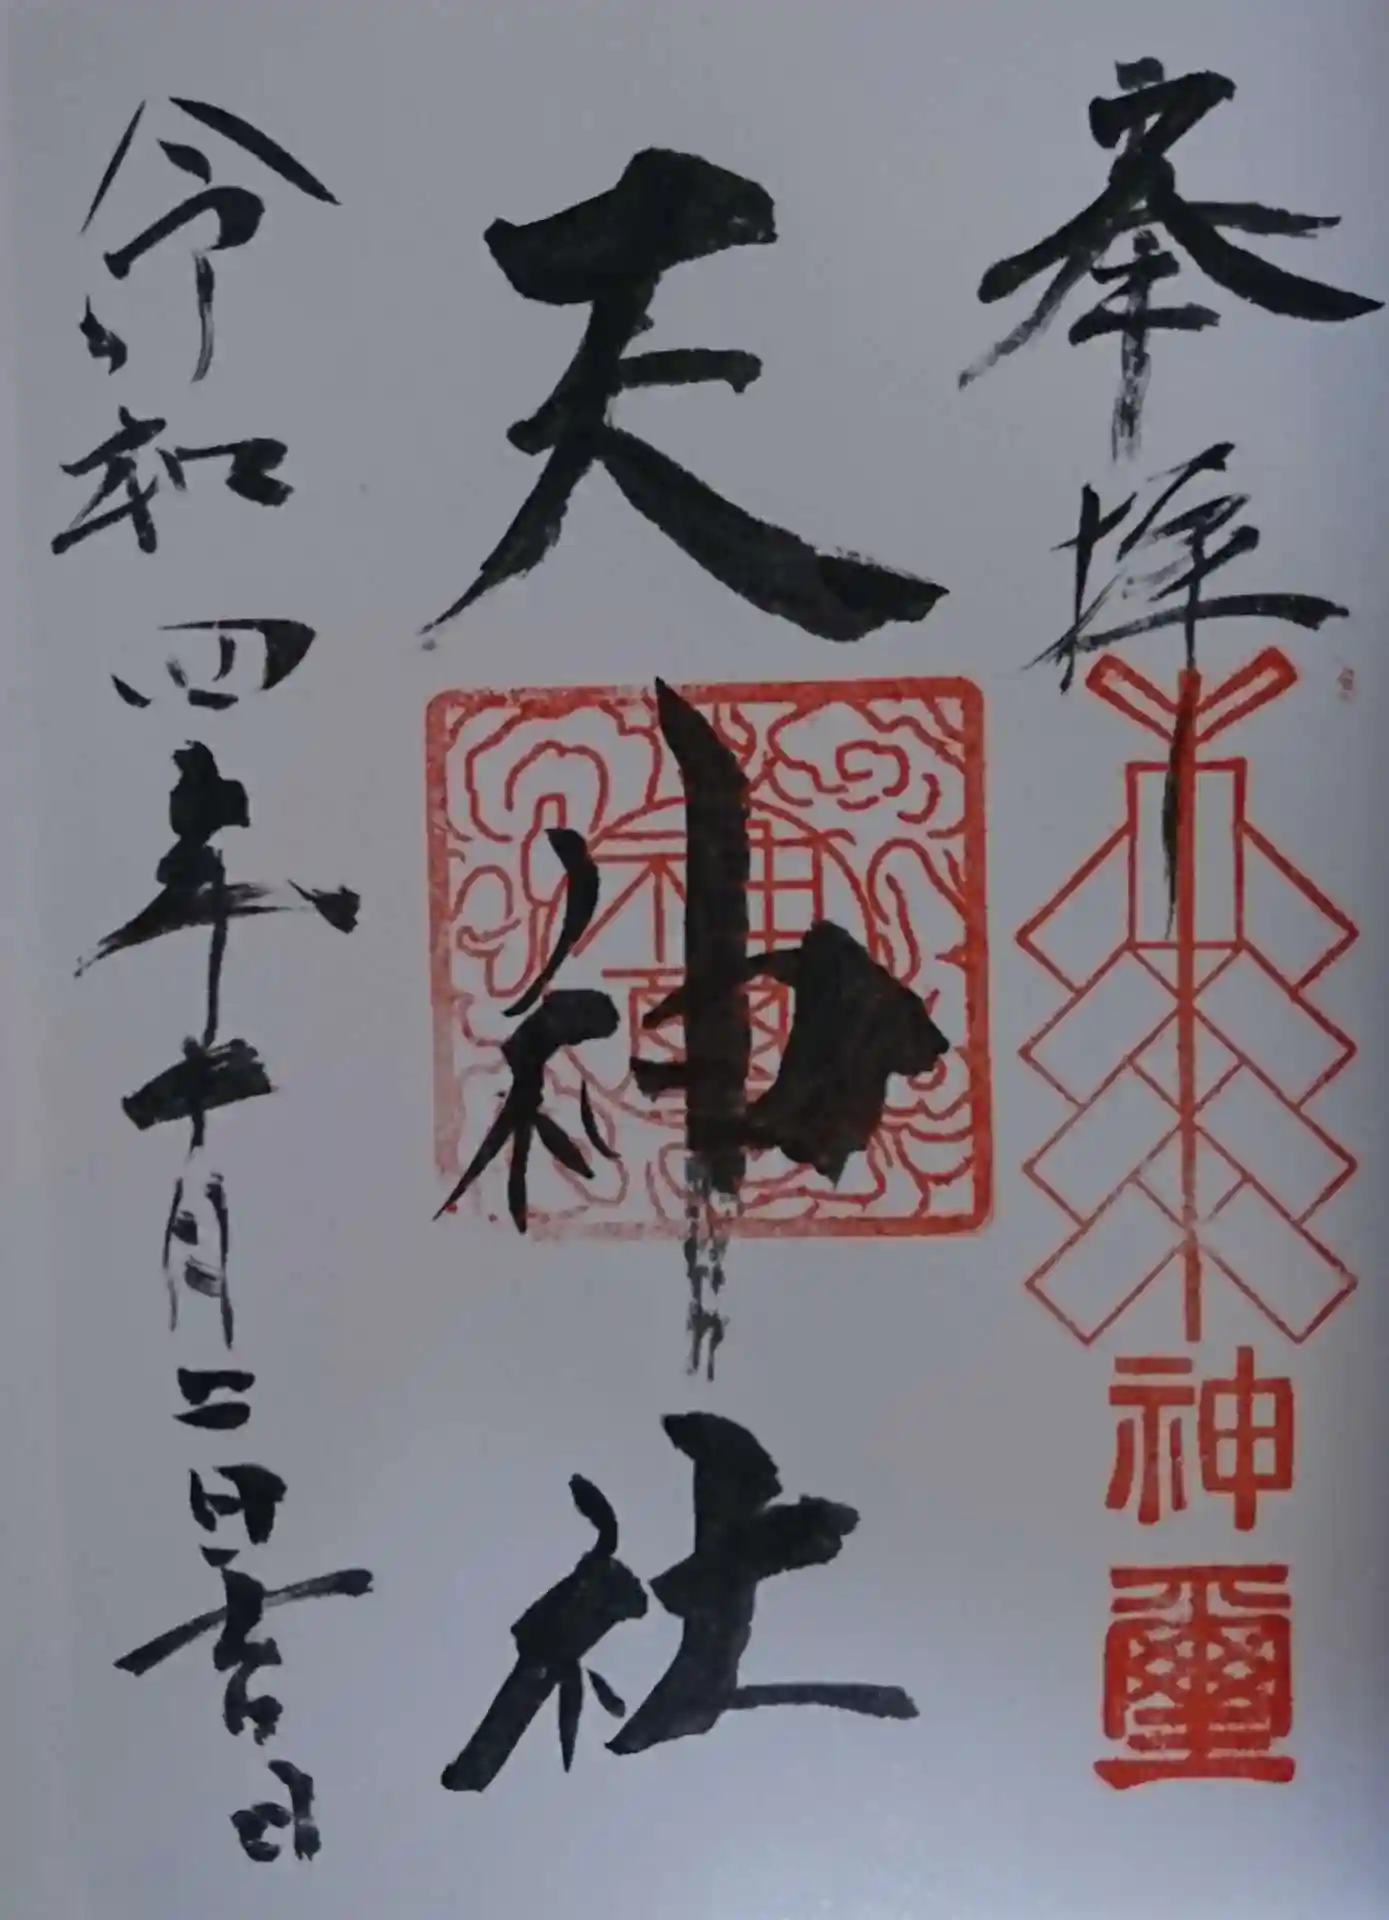 奉拝
神璽
天神社
神璽
令和四年十月二日
吉日